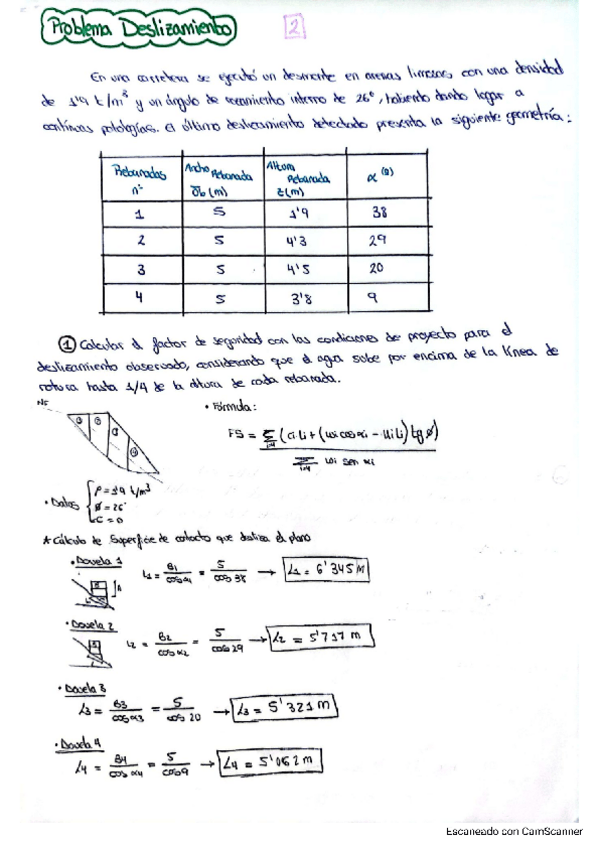 Problema Deslizamiento
2
En una carretera se ejecutó un desmonte en arenas limosas con una densidad
de 1'9 t/m³ y un ángulo de rozamiento interno de 26º, habiendo dando lugar a
continuas patologías. El último deslizamiento detectado presenta la siguiente geometría:
Rebanadas nº Ancho Rebanada δb (m) Altura Rebanada z (m) α (º)
1 5 1'9 38
2 5 4'3 29
3 5 4'5 20
4 5 3'8 9
① Calcular el factor de seguridad con las condiciones de proyecto para el
deslizamiento observado, considerando que el agua sube por encima de la línea de
rotura hasta 1/4 de la altura de cada rebanada.
• Fórmula:
FS = Σ (ci·Li + (wi cos αi − Ui Li) tg ø)
Σ wi sen αi
• Datos
ρ = 1'9 t/m³
ø = 26º
C = 0
* Cálculo de Superficie de contacto que desliza el plano
• Dovela 1
L1 = B1/cos α1 = 5/cos 38 → L1 = 6'345 M
• Dovela 2
L2 = B2/cos α2 = 5/cos 29 → L2 = 5'717 m
• Dovela 3
L3 = B3/cos α3 = 5/cos 20 → L3 = 5'321 m
• Dovela 4
L4 = B4/cos α4 = 5/cos 9 → L4 = 5'062 m
Escaneado con CamScanner